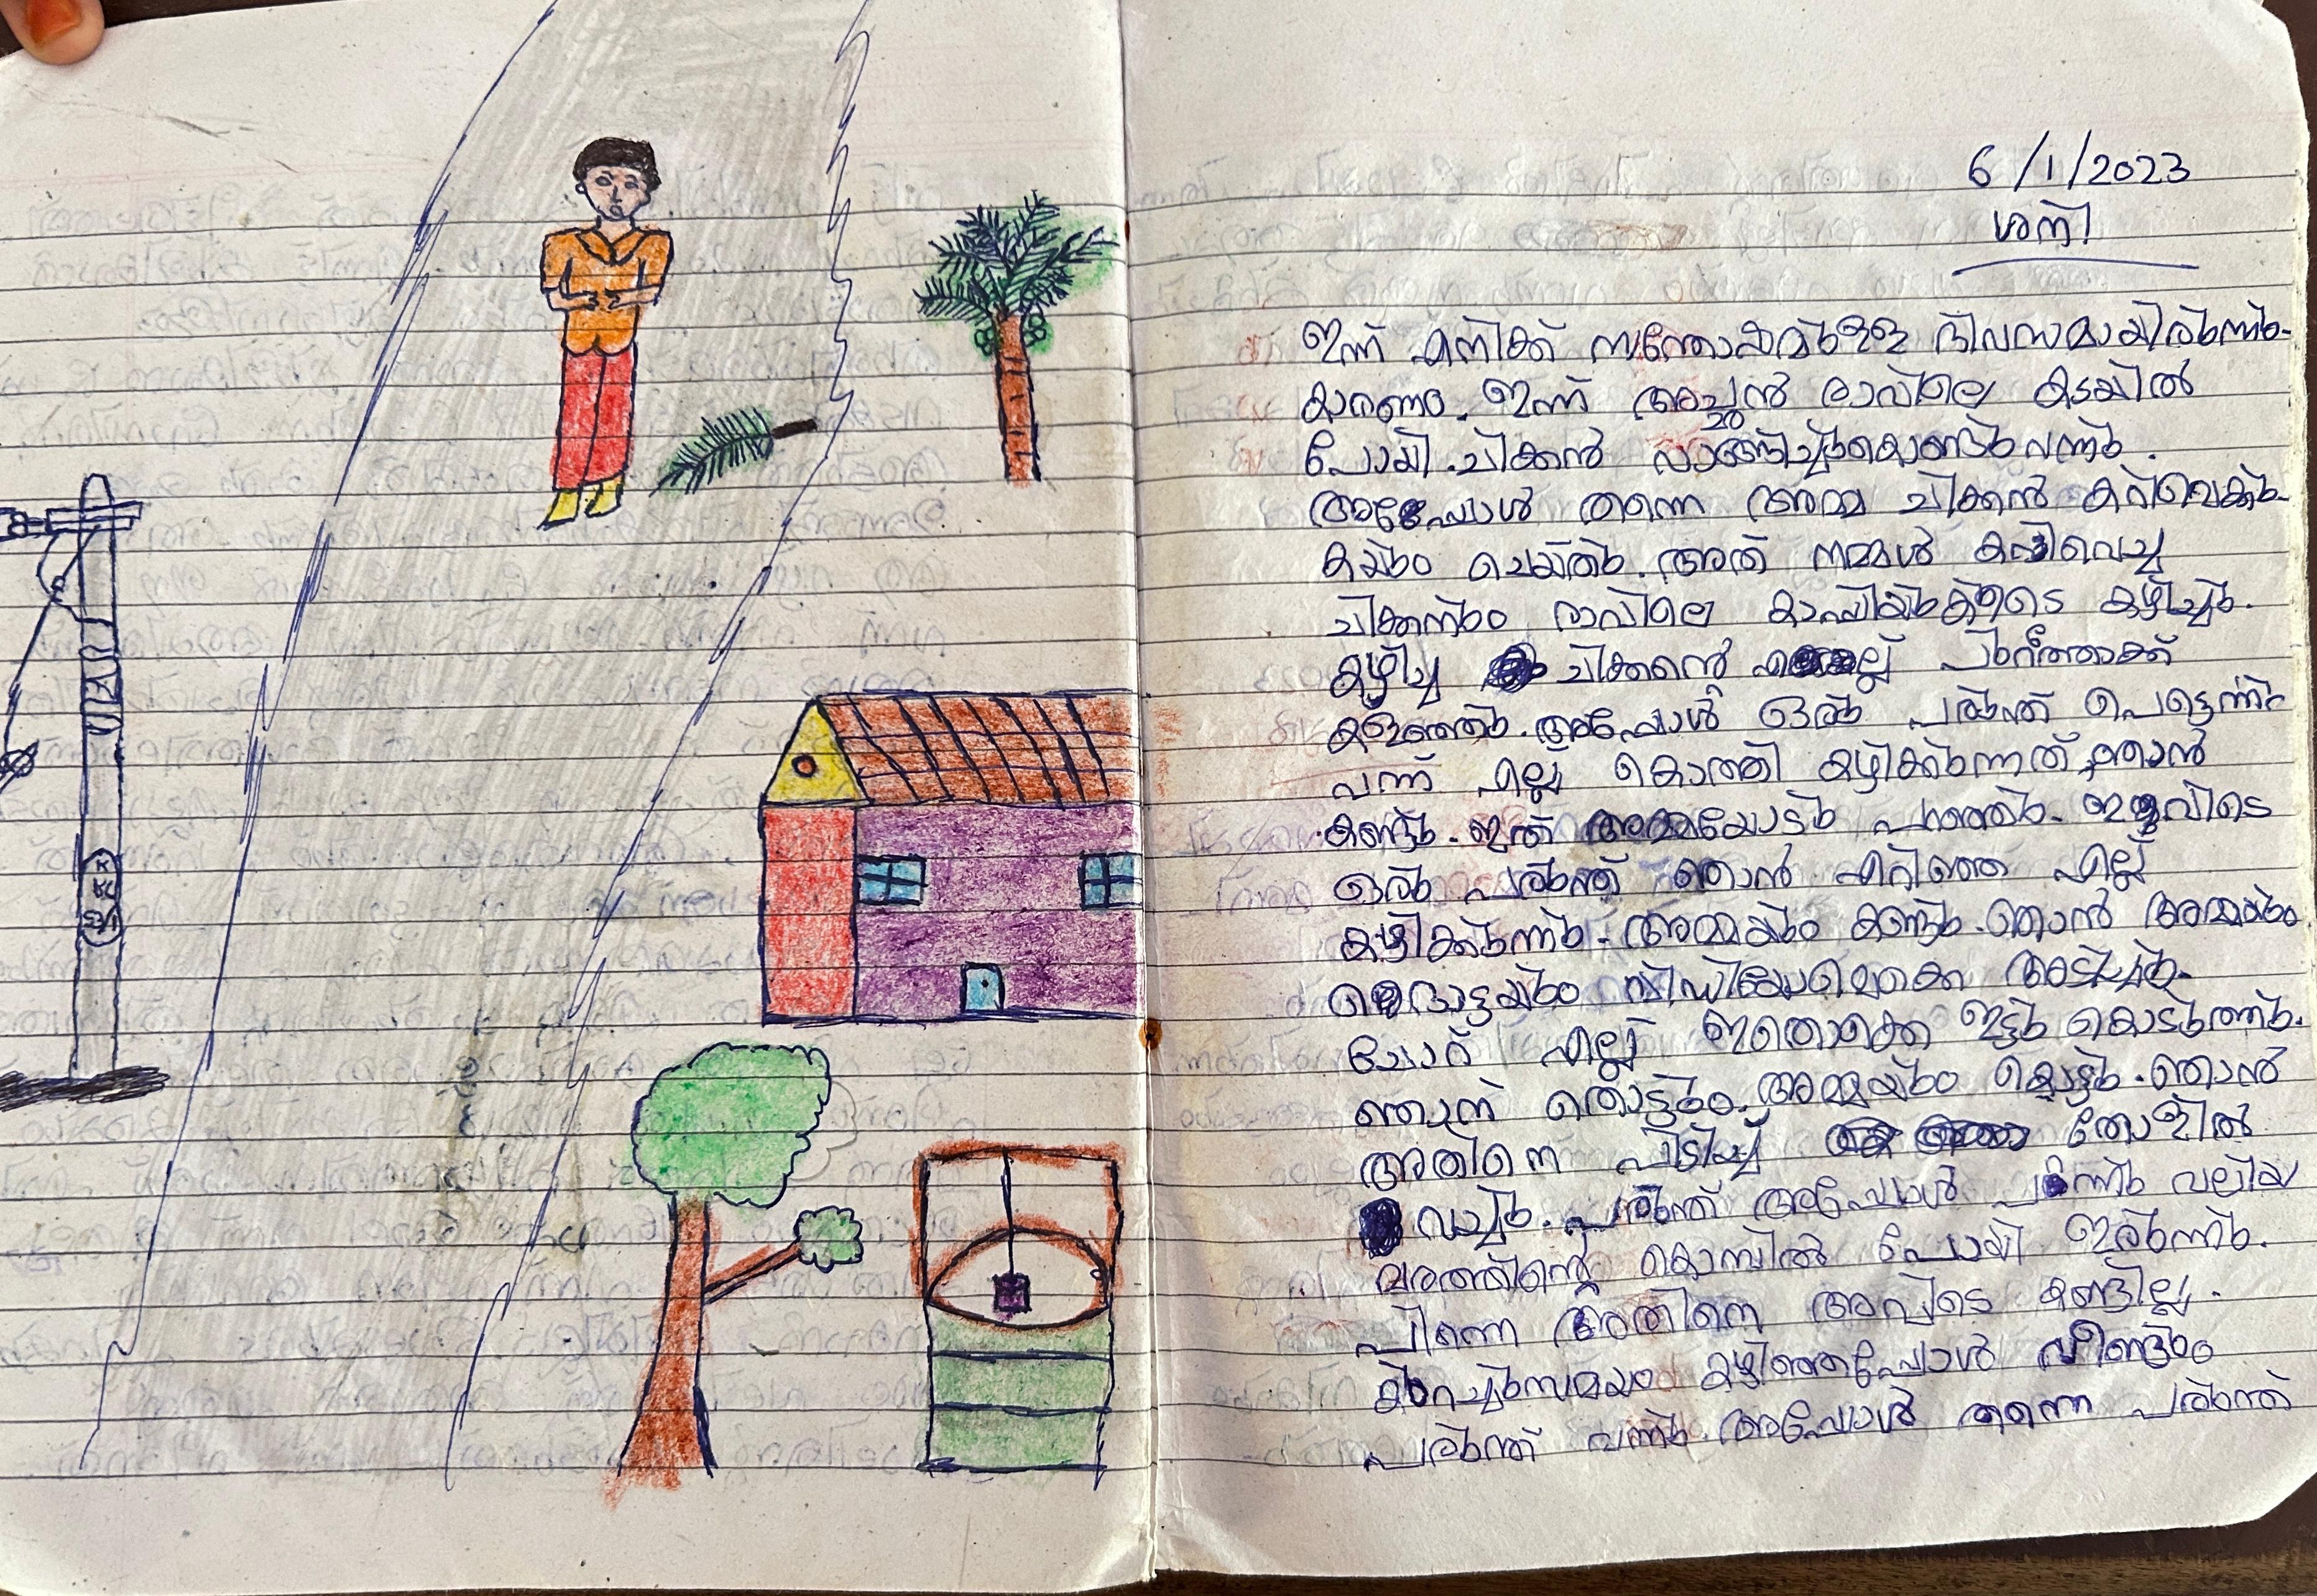 6/1/2023
ശനി
ഇന്ന് എനിക്ക് സന്തോഷമുള്ള ദിവസമായിരുന്നു.
കാരണം. ഇന്ന് അച്ഛൻ രാവിലെ കടയിൽ
പോയി. ചിക്കൻ വാങ്ങിച്ചുകൊണ്ടുവന്നു.
അപ്പോൾ തന്നെ അമ്മ ചിക്കൻ കറിവെക്കു-
കയും ചെയ്തു. അത് നമ്മൾ കറിവെച്ച
ചിക്കനും രാവിലെ കാപ്പിയുകൂടെ കഴിച്ചു.
കഴിച്ച ചിക്കന്റെ എല്ല് പുറത്തോക്ക്
കളഞ്ഞു. അപ്പോൾ ഒരു പരുന്ത് പെട്ടെന്നു
വന്ന് എല്ല് കൊത്തി കഴിക്കുന്നത് ഞാൻ
കണ്ടു. ഇത് അമ്മയോടു പറഞ്ഞു. ഇവിടെ
ഒരു പരുന്ത് ഞാൻ എറിഞ്ഞ എല്ല്
കഴിക്കുന്നു. അമ്മയും കണ്ടു. ഞാൻ അമ്മയും
ഫോട്ടയും വീഡിയോയൊക്കെ അടിച്ചു.
ചോറ് എല്ല് ഇതൊക്കെ ഇട്ടു കൊടുത്തു.
ഞാന് തൊട്ടും. അമ്മയും തൊട്ടു. ഞാൻ
അതിനെ പിടിച്ച് തോളിൽ
വച്ചു. പരുന്ത് അപ്പോൾ പറന്നു വലിയ
മരത്തിന്റെ കൊമ്പിൽ പോയി ഇരുന്നു.
പിന്നെ അതിനെ അവിടെ കണ്ടില്ല.
കുറച്ചുസമയം കഴിഞ്ഞപ്പോൾ വീണ്ടും
പരുന്ത് വന്നു. അപ്പോൾ തന്നെ പരുന്ത്